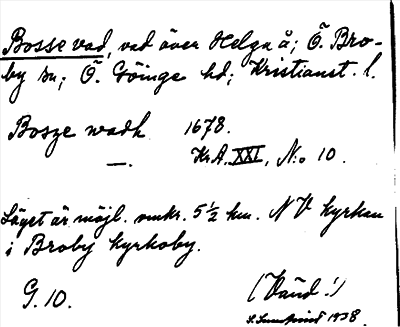 Bosse vad, vad över Helga å; Ö. Bro-
by sn; Ö. Göinge hd; Kristianst. l.
Bosze wadh 1678.
—. Kr.A. XXI, No 10.
Läget är möjl. omkr. 5 ½ km. NV kyrkan
i Broby kyrkoby.
G. 10. (Vänd!)
1938.